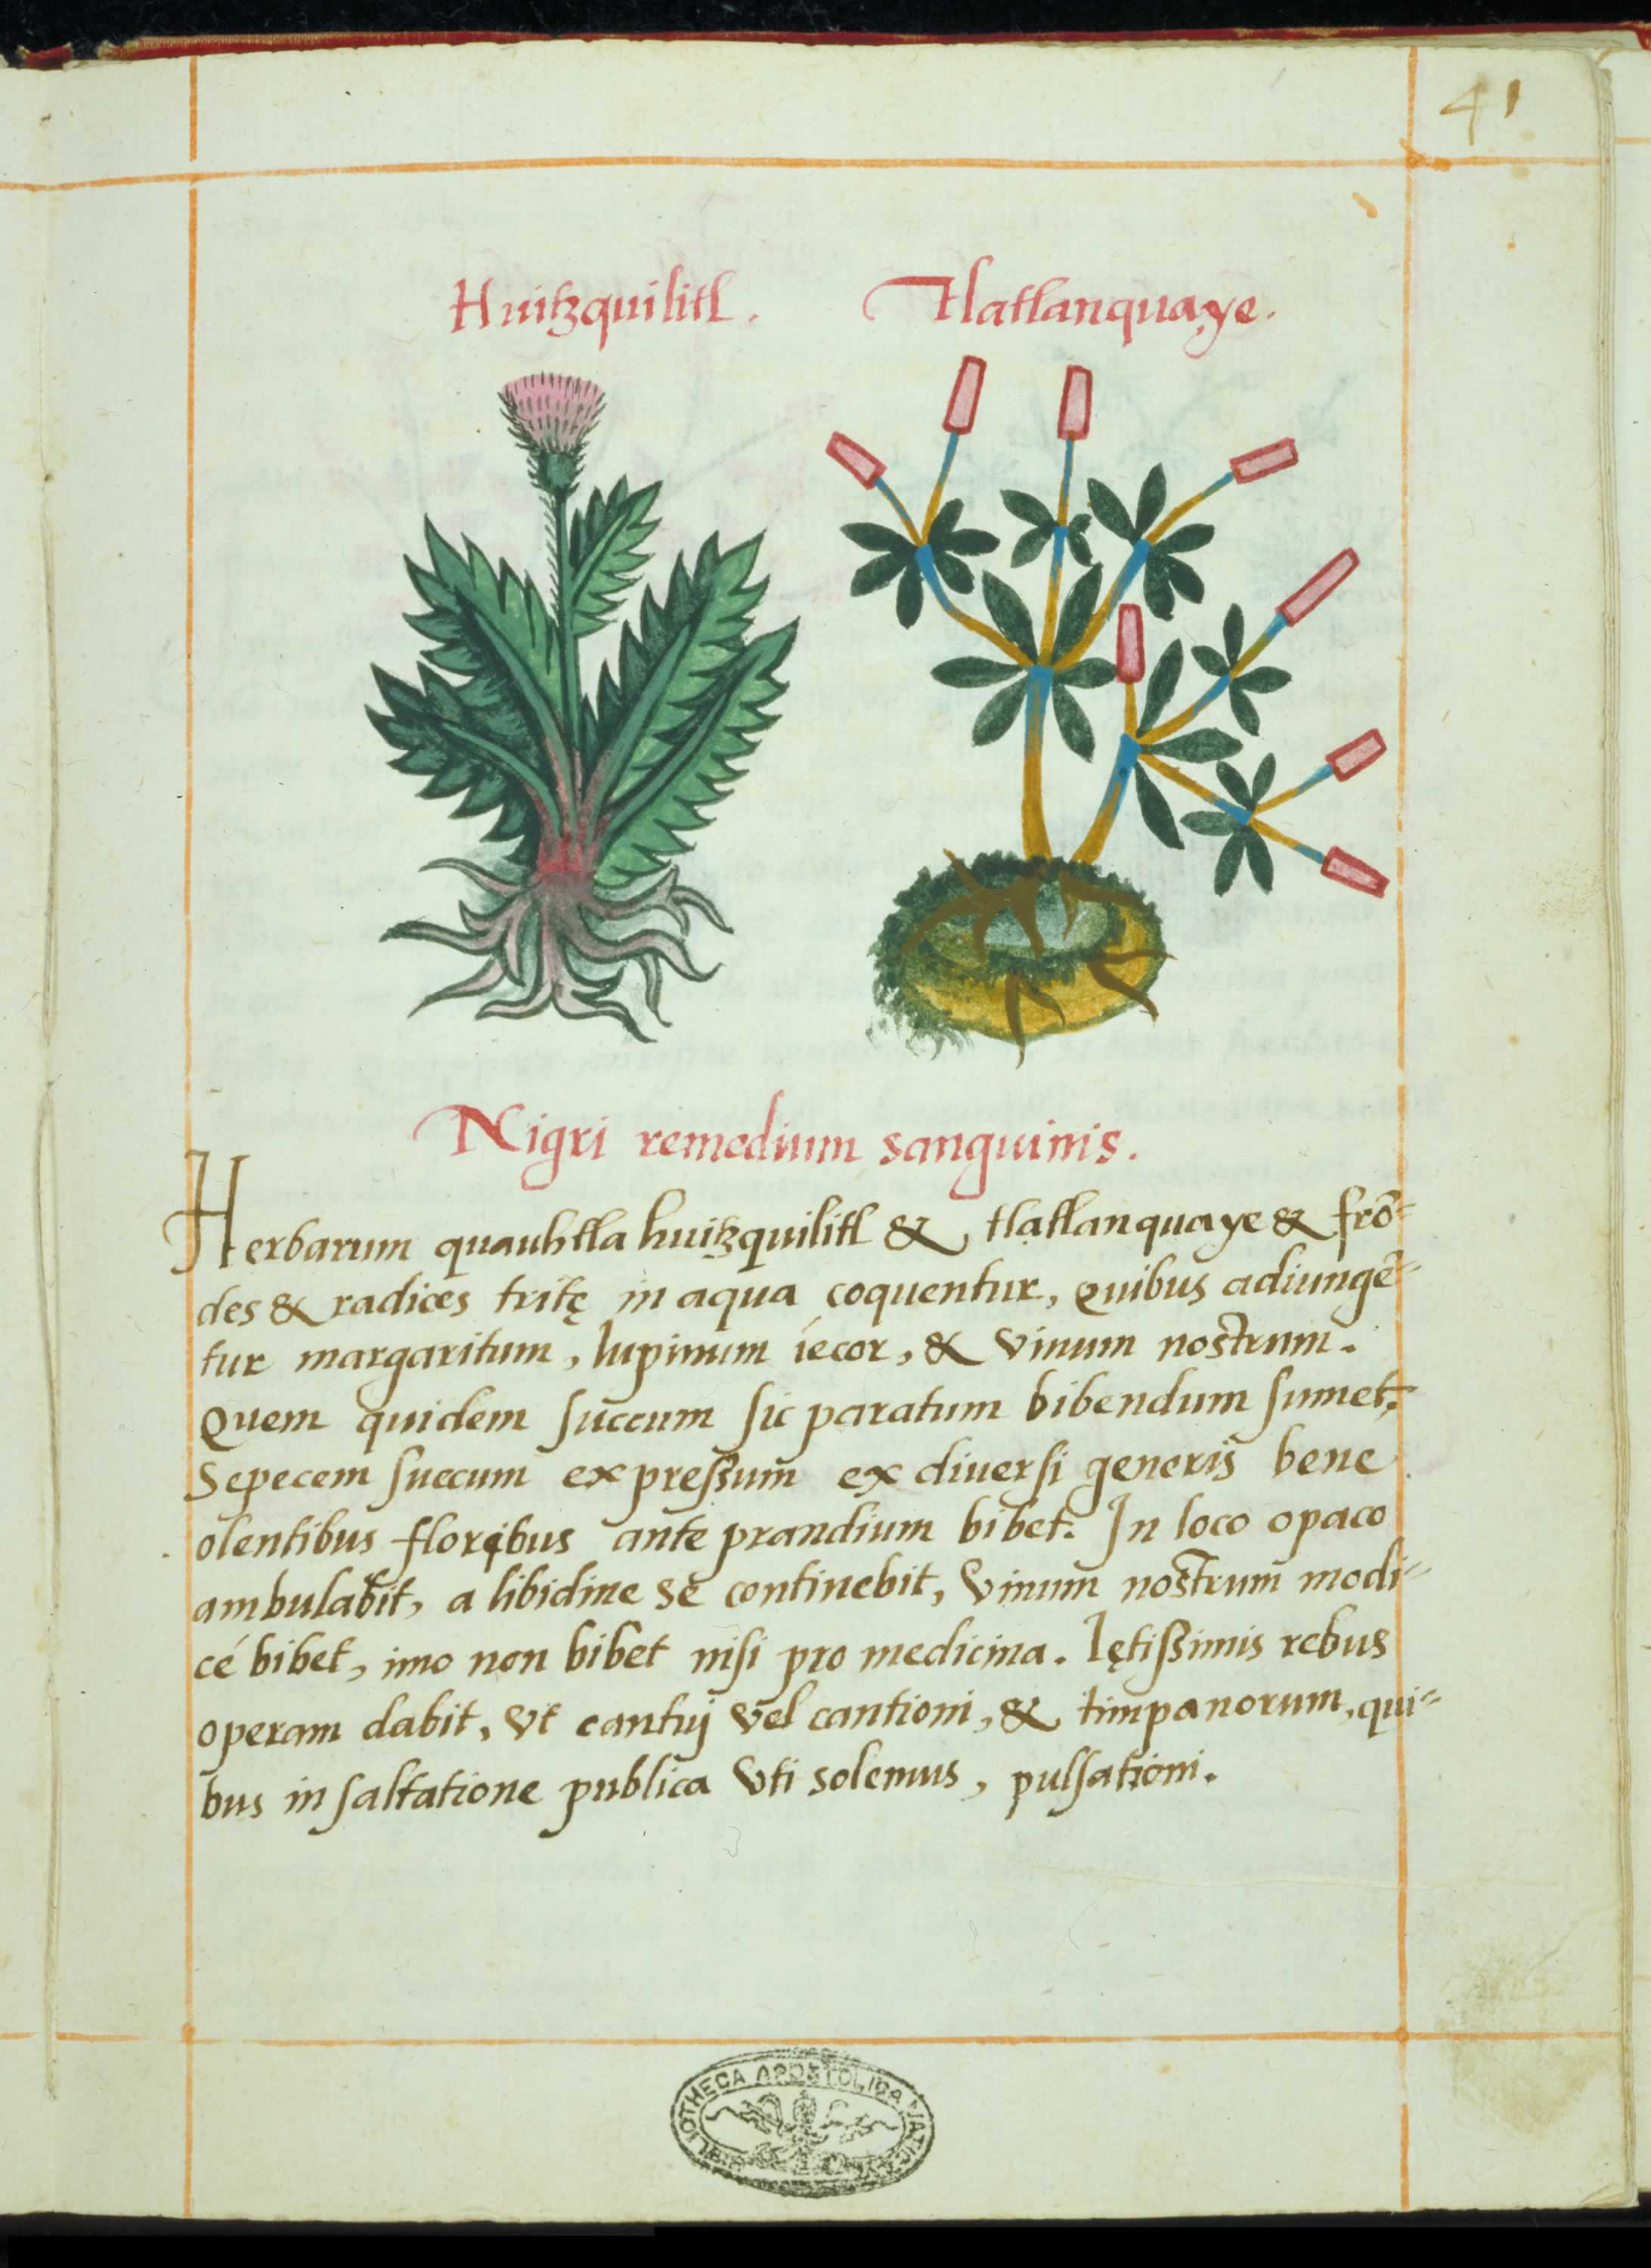 41
Huitzquilitl. Tlatlanquaye.
Nigri remedium sanguinis.
Herbarum quauhtla huitzquilitl & tlatlanquaye & frō-
des & radices tritę in aqua coquentur, quibus adiungē-
tur margaritum, lupinum iecor, & vinum nostrum.
Quem quidem succum sic paratum bibendum sumet,
Sepecem succum expressum ex diuersi generis bene
olentibus floribus ante prandium bibet. In loco opaco
ambulabit, a libidine se continebit, vinum nostrum modi-
cé bibet, imo non bibet nisi pro medicina. lętissimis rebus
operam dabit, vt cantuj vel cantioni, & timpanorum, qui-
bus in saltatione publica vti solemus, pulsationi.
BIBLIOTHECA APOSTOLICA VATIC